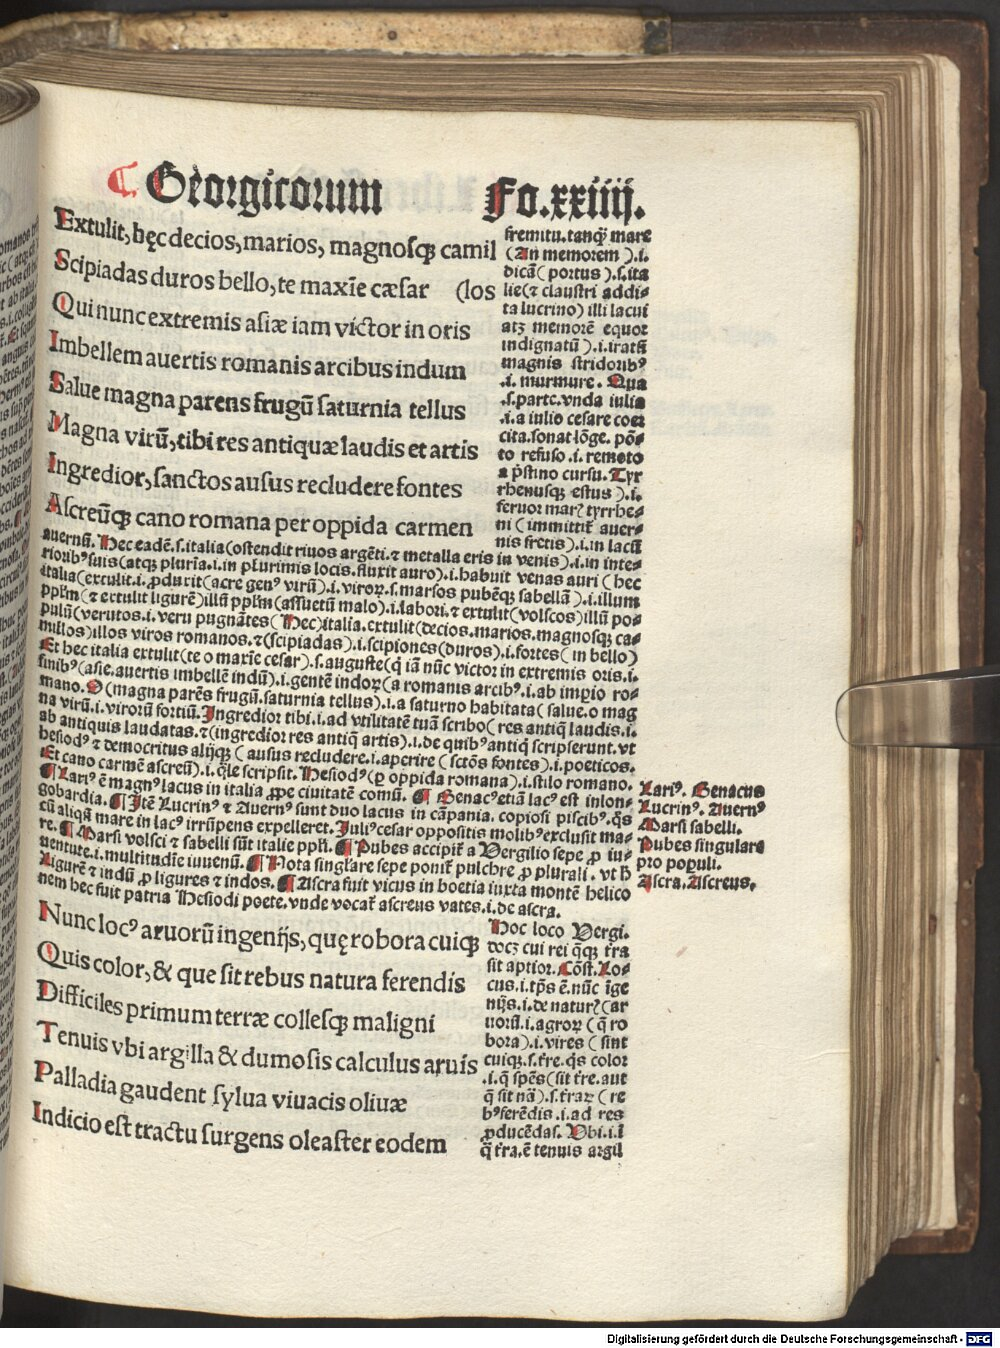 Georgicorum Fo.xxiiij.
Extulit, hęc decios, marios, magnosqꝫ camil
Scipiadas duros bello, te maxīe cæsar (los
Qui nunc extremis asiæ iam victor in oris
Imbellem auertis romanis arcibus indum
Salue magna parens frugū saturnia tellus
Magna virū, tibi res antiquæ laudis et artis
Ingredior, sanctos ausus recludere fontes
Ascreūqꝫ cano romana per oppida carmen
fremitu. tanqꝫ mare
(An memorem).i.
dicā(portus).s.ita
lie(⁊ claustri addi-
ta lucrino) illi lacui
atꝫ memorē equor
indignatū).i.iratū
magnis stridoribꝰ
.i. murmure. Qua
.s. parte. vnda iulia
.i.a iulio cesare coer
cita. sonat lōge. pō-
to refuso .i. remoto
a pͥstino cursu. Tyr
rhenusqꝫ estus).i.
feruor marꝭ tyrrhe-
ni (immittit̃ auer-
nis fretis).i.in lacū
auernū. Hec eadē.s.italia(ostendit riuos argēti.⁊ metalla eris in venis).i.in inte-
rioribꝰ suis(atqꝫ pluria.i.in plurimis locis. fluxit auro).i.habuit venas auri (hec
italia(extulit.i.ꝓduxit(acre genꝰ virū).i.viroꝝ.s.marsos pubēqꝫ sabellā).i.illum
pplꝫm (⁊ extulit ligurē)illū pplꝫm (assuetū malo).i.labori.⁊ extulit(volscos)illū po-
pulū(verutos.i.veru pugnātes(Hec)italia.extulit(decios.marios.magnosqꝫ ca-
millos)illos viros romanos.⁊(scipiadas).i.scipiones(duros).i.fortes(in bello)
Et hec italia extulit(te o maxīe cesar).s.auguste(q̄ iā nūc victor in extremis oris.i.
finibꝰ(asie.auertis imbellē indū).i.gentē indoꝝ(a romanis arcibꝰ.i.ab impio ro-
mano. O (magna parēs frugū.saturnia tellus).i.a saturno habitata(salue.o mag
na virū.i.virorū fortiū. Ingredior tibi.i.ad vtilitatē tuā scribo(res antiq̄ laudis.i.
ab antiquis laudatas.⁊(ingredior res antiq̄ artis).i.de quibꝰ antiq̄ scripserunt.vt
hesiodꝰ ⁊ democritus alijqꝫ (ausus recludere.i.aperire (sctōs fontes).i.poeticos.
Et cano carmē ascreū).i.q̄le scripsit. Hesiodꝰ(ꝑ oppida romana).i.stilo romano.
¶ Lariꝰ ē magnꝰ lacus in italia ꝓpe ciuitatē comū. ¶ Benacꝰ etiā lacꝰ est in lon-
gobardia. ¶ Itē Lucrinꝰ ⁊ Auernꝰ sunt duo lacus in cāpania. copiosi piscibꝰ. q̄s
cū aliqñ mare in lacꝰ irrūpens expelleret. Juliꝰ cesar oppositis molibꝰ exclusit ma-
re. ¶ Marsi volsci ⁊ sabelli sūt italie ppl̄i. ¶ Pubes accipit̃ a Vergilio sepe ꝓ iu-
uentute.i.multitudīe iuuenū. ¶ Nota singlare sepe ponit̃ pulchre ꝓ plurali. vt h̄
Ligurē ⁊ indū ꝓ ligures ⁊ indos. ¶ Ascra fuit vicus in boetia iuxta montē helico
nem hec fuit patria Hesiodi poete. vnde vocat̃ ascreus vates.i.de ascra.
Lariꝰ. Benacus
Lucrinꝰ. Auernꝰ
Marsi sabelli.
Pubes singulare
pro populi.
Ascra. Ascreus.
Nunc locꝰ aruorū ingenijs, quę robora cuiqꝫ
Quis color, & que sit rebus natura ferendis
Difficiles primum terræ collesqꝫ maligni
Tenuis vbi argilla & dumosis calculus aruis
Palladia gaudent sylua viuacis oliuæ
Indicio est tractu surgens oleaster eodem
Hoc loco Vergi.
docꝫ cui rei q̄qꝫ t̄ra
sit aptior. Cōst. Lo-
cus.i.tp̄s ē.nūc īge
nijs.i.de naturꝭ(ar
uorū.i.agroꝝ (q̄ ro
bora).i.vires (sint
cuiqꝫ.s.t̄re.q̄s color
.i.q̄ spēs(sit t̄re.aut
q̄ sit nā).s.t̄raꝝ (re
bꝰ ferēdis.i.ad res
ꝓducēdas. Vbi.i.ī
q̄ t̄ra.ē tenuis argil
Digitalisierung gefördert durch die Deutsche Forschungsgemeinschaft - DFG